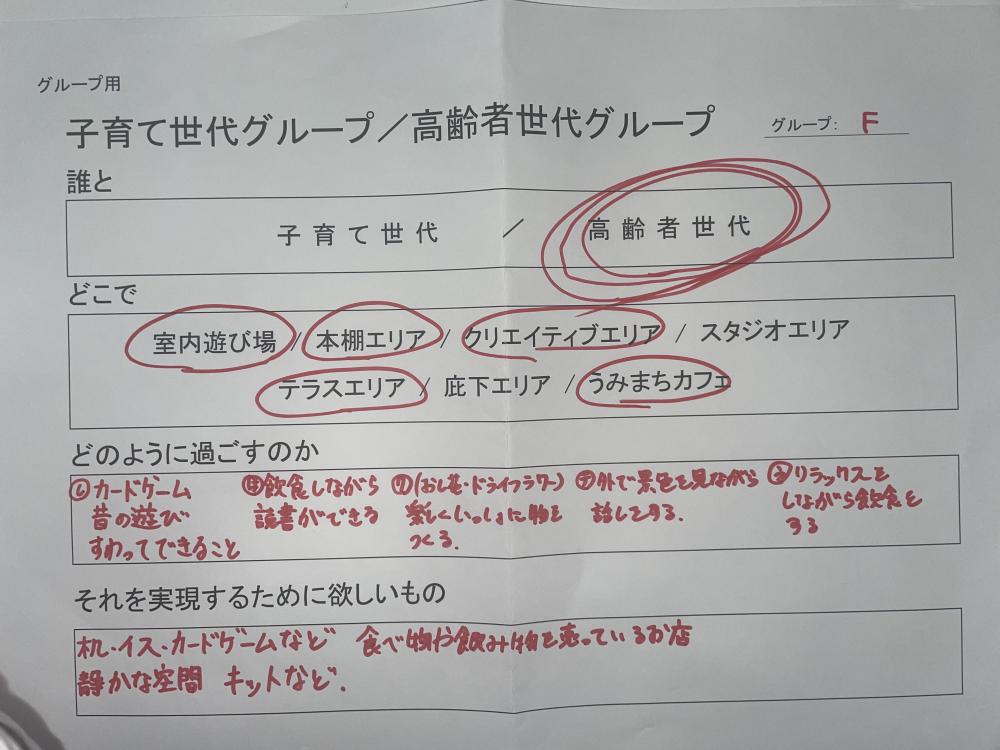 グループ用
子育て世代グループ／高齢者世代グループ
グループ: F
誰と
子育て世代 ／ 高齢者世代
どこで
室内遊び場 / 本棚エリア / クリエイティブエリア / スタジオエリア
テラスエリア / 庇下エリア / うみまちカフェ
どのように過ごすのか
カードゲーム
昔の遊び
すわってできること
飲食しながら
読書ができる
(おし花・ドライフラワー)
楽しくいっしょに物を
つくる.
外で景色を見ながら
話しをする.
リラックスを
しながら飲食を
する
それを実現するために欲しいもの
机・イス・カードゲームなど 食べ物や飲み物を売っているお店
静かな空間 キットなど.